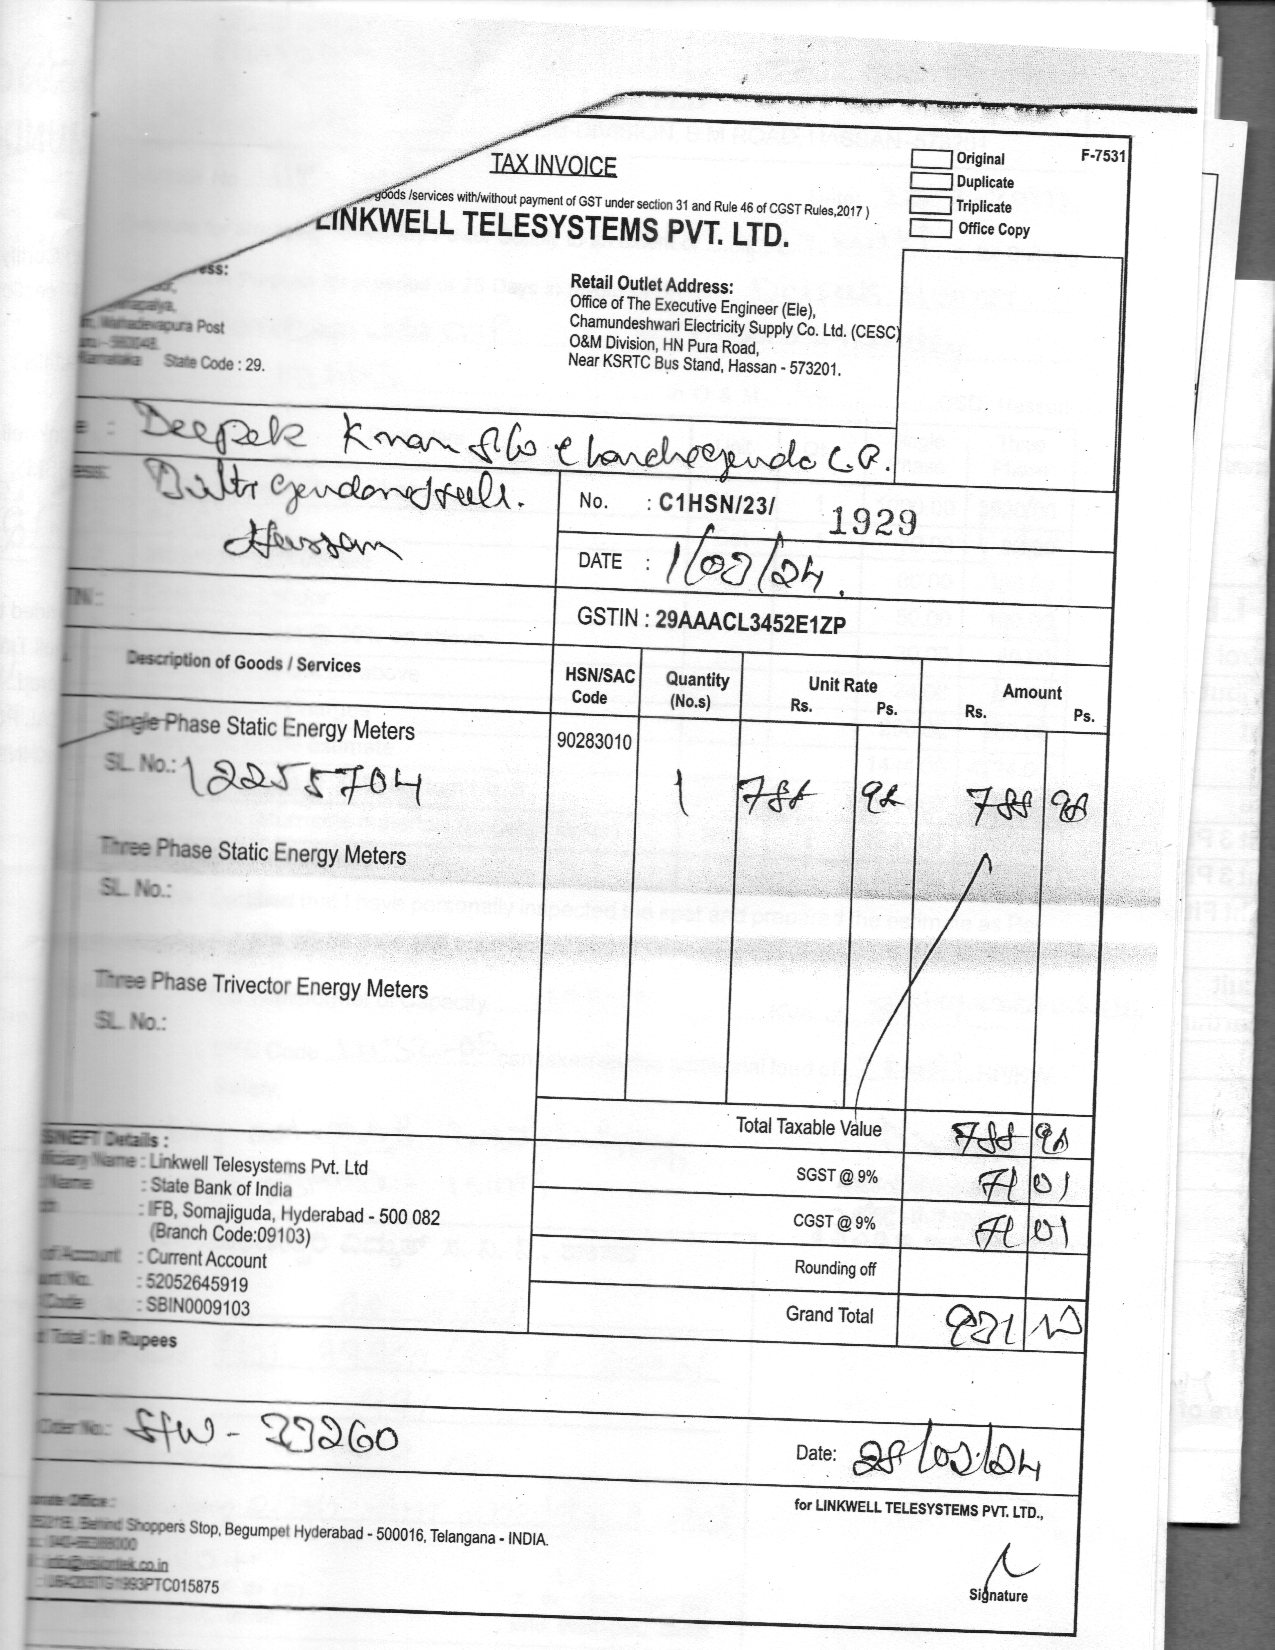 TAX INVOICE
goods /services with/without payment of GST under section 31 and Rule 46 of CGST Rules,2017 )
LINKWELL TELESYSTEMS PVT. LTD.
Original
Duplicate
Triplicate
Office Copy
F-7531
Mahadevapura Post
Karnataka State Code : 29.
Retail Outlet Address:
Office of The Executive Engineer (Ele),
Chamundeshwari Electricity Supply Co. Ltd. (CESC)
O&M Division, HN Pura Road,
Near KSRTC Bus Stand, Hassan - 573201.
: Deepak
Hassan
No. : C1HSN/23/ 1929
DATE : 1/03/24.
GSTIN : 29AAACL3452E1ZP
Description of Goods / Services
HSN/SAC Code
Quantity (No.s)
Unit Rate Rs. Ps.
Amount Rs. Ps.
Single Phase Static Energy Meters 90283010
SL. No.: 12255704 1 788 98 788 98
Three Phase Static Energy Meters
SL. No.:
Three Phase Trivector Energy Meters
SL. No.:
Total Taxable Value 788 98
SGST @ 9% 71 01
CGST @ 9% 71 01
Rounding off
Grand Total 931
NEFT Details :
Name : Linkwell Telesystems Pvt. Ltd
Name : State Bank of India
: IFB, Somajiguda, Hyderabad - 500 082
(Branch Code:09103)
of Account : Current Account
No. : 52052645919
Code : SBIN0009103
Total : In Rupees
Order No.: 33260
Date: 28/02/24
for LINKWELL TELESYSTEMS PVT. LTD.,
Office :
Behind Shoppers Stop, Begumpet Hyderabad - 500016, Telangana - INDIA.
info@visiontek.co.in
1993PTC015875
Signature